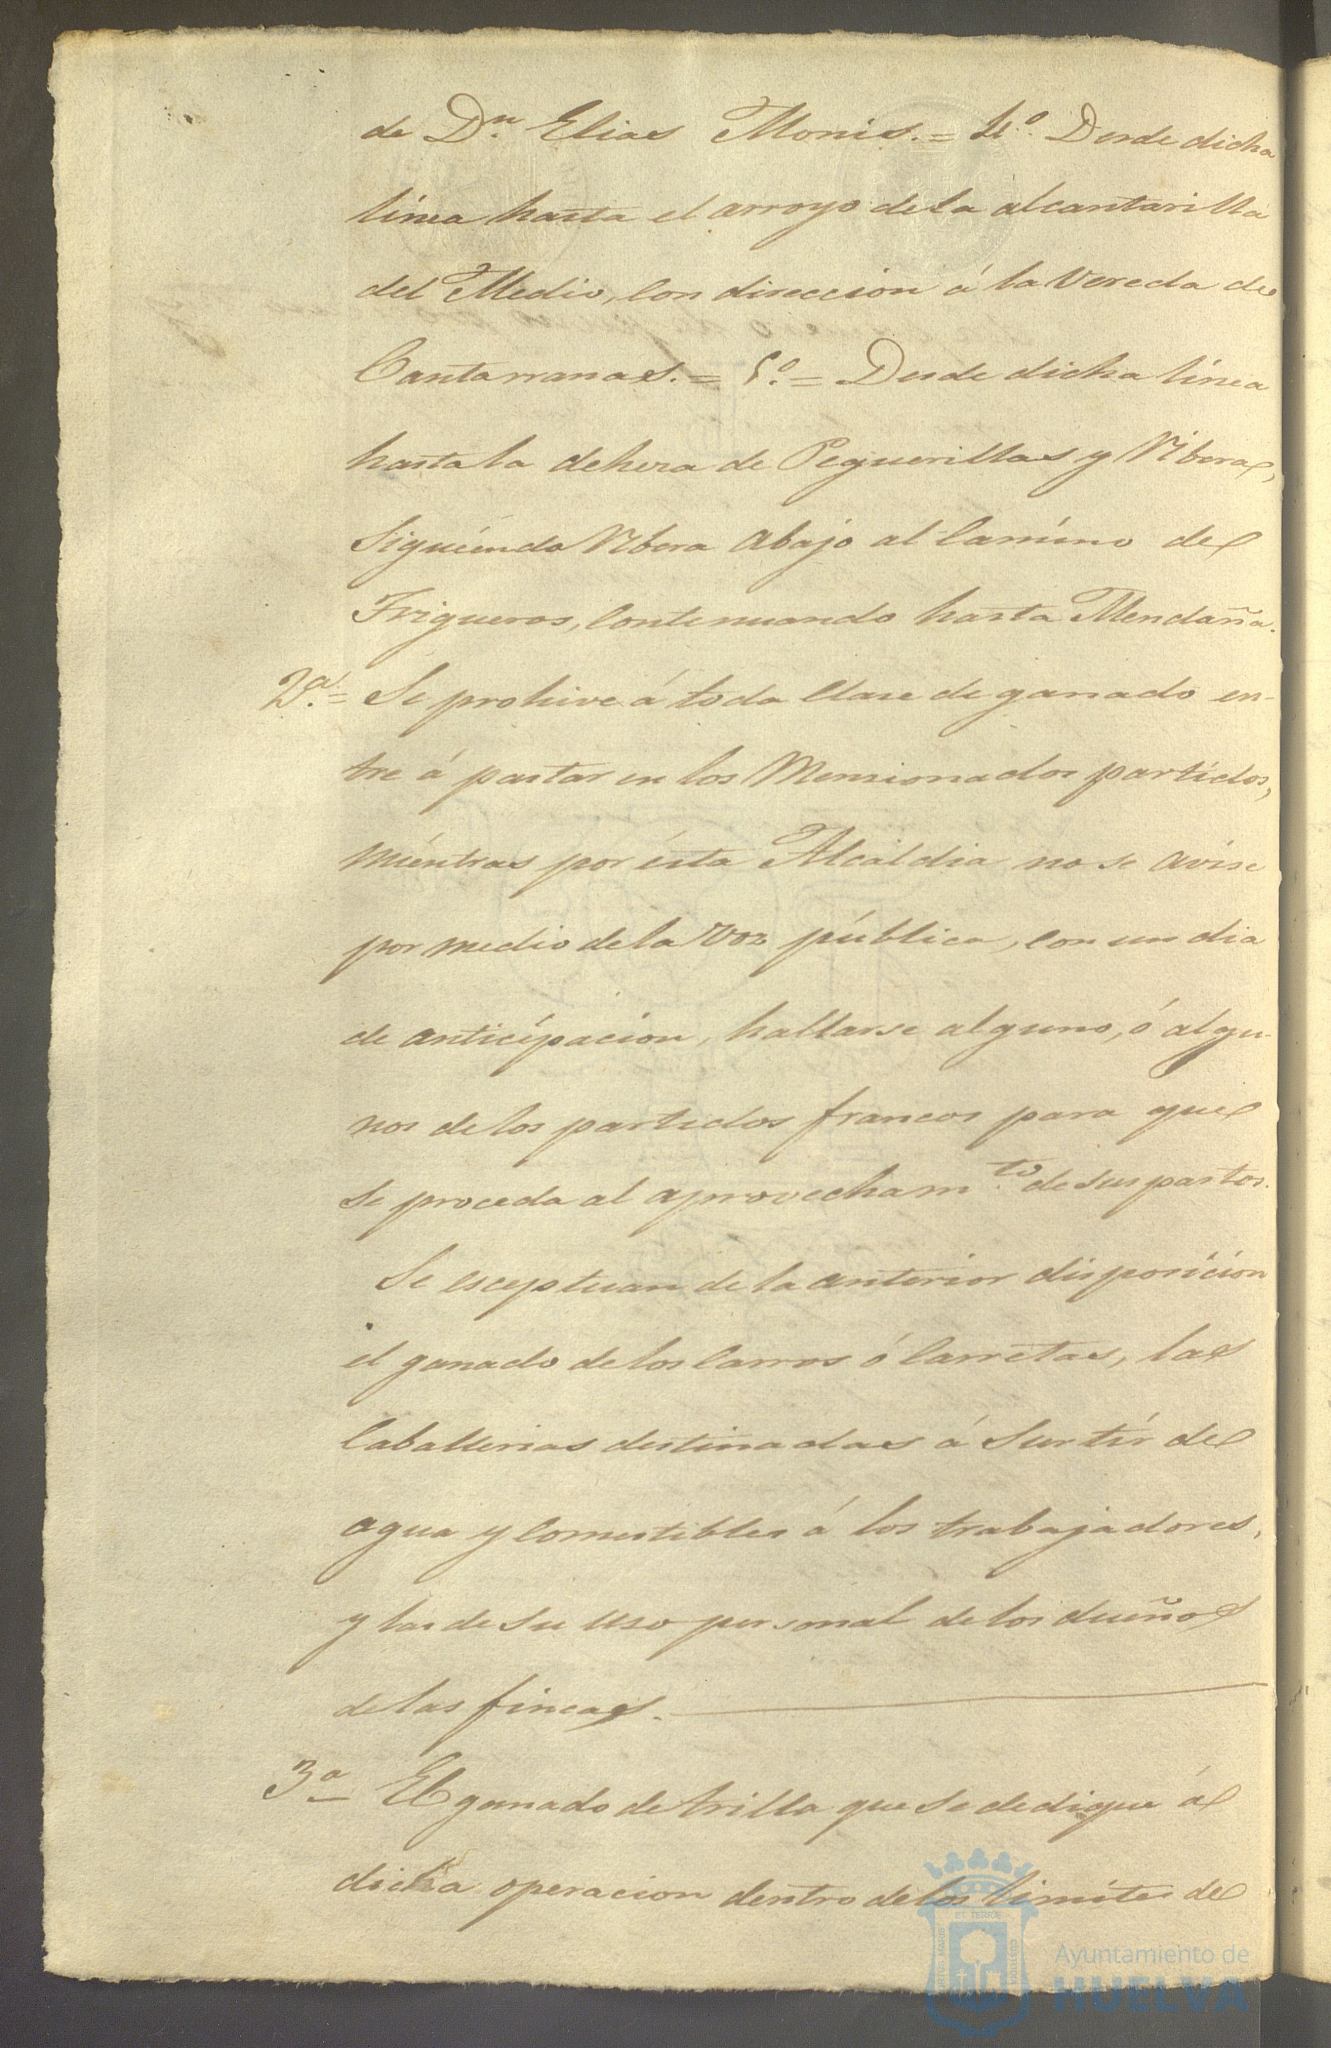 de Dn. Elias Monis. = 4º. Desde dicha
línea hasta el arroyo de la alcantarilla
del Medio, con direccion á la Vereda de
Cantarranas. = 5º. = Desde dicha línea
hasta la dehesa de Peguerillas y Ribera,
siguiendo Ribera abajo al camino de
Trigueros, continuando hasta Mendaña.
2ª. = Se prohive á toda clase de ganado en-
tre á pastar en los mensionados partidos,
mientras por ésta Alcaldia no se avise
por medio de la voz pública, con un dia
de anticipacion, hallarse alguno, ó algu-
nos de los partidos francos para que
se proceda al aprovecham.to de sus pastos.
Se esceptuan de la anterior disposicion
el ganado de los carros ó carretas, las
caballerias destinadas á surtir de
agua y comestibles á los trabajadores,
y las de su uso personal de los dueños
de las fincas.
3ª El ganado de trilla que se dedique á
dicha operacion dentro de los limites de
Ayuntamiento de
HUELVA